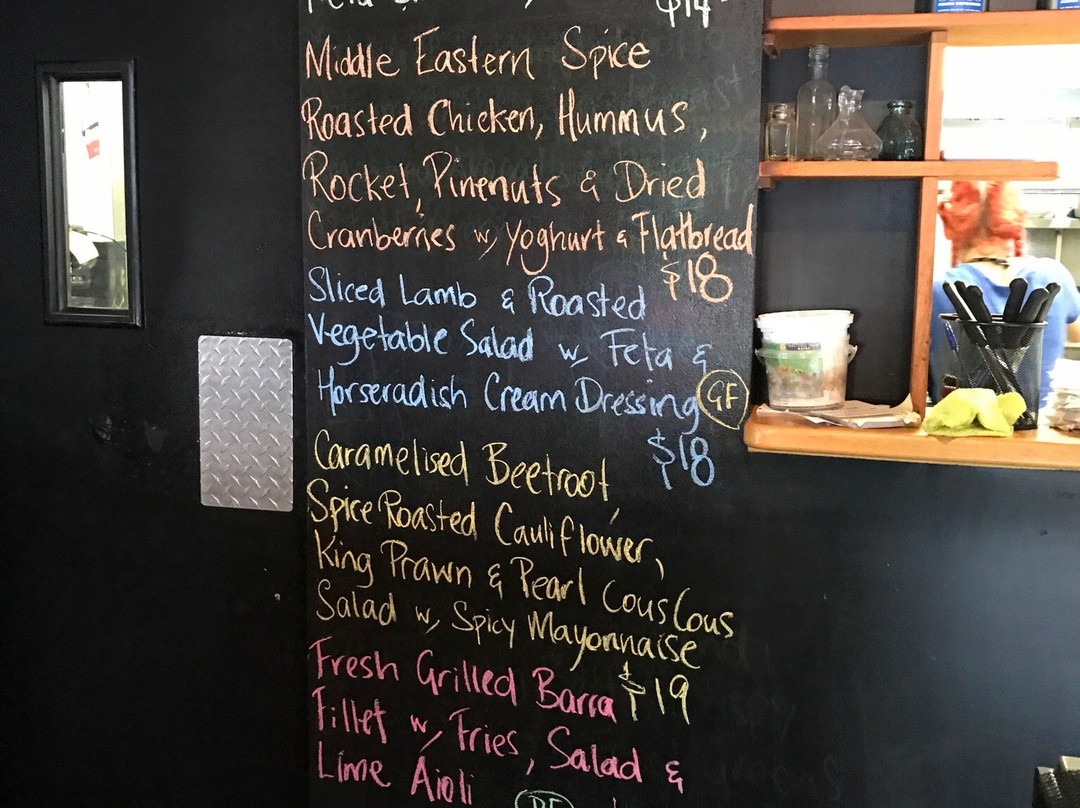 $14
Middle Eastern Spice
Roasted Chicken, Hummus,
Rocket, Pinenuts & Dried
Cranberries w, Yoghurt & Flatbread
$18
Sliced Lamb & Roasted
Vegetable Salad w, Feta &
Horseradish Cream Dressing GF
$18
Caramelised Beetroot,
Spice Roasted Cauliflower,
King Prawn & Pearl CousCous
Salad w, Spicy Mayonnaise
$19
Fresh Grilled Barra
Fillet w, Fries, Salad &
Lime Aioli